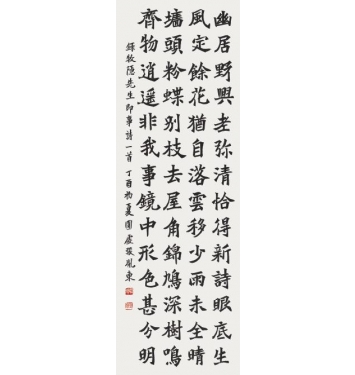 幽居野興老弥清恰得新詩眼底生
風定餘花猶自落雲移少雨未全晴
墻頭粉蝶別枝去屋角錦鳩深樹鳴
齊物逍遥非我事鏡中形色甚分明
錄牧隐先生即事詩一首丁酉初夏圃虛張鳳東